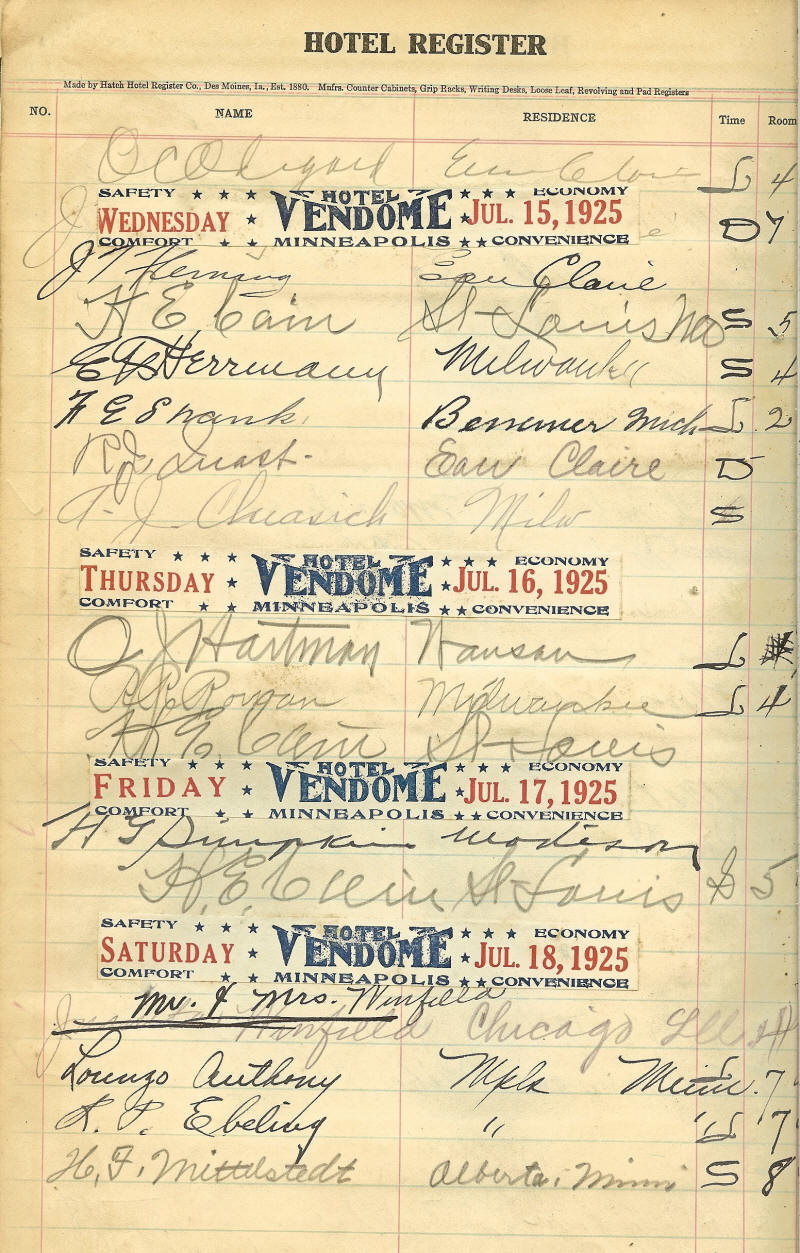 HOTEL REGISTER
Made by Hatch Hotel Register Co., Des Moines, Ia., Est. 1880. Mnfrs. Counter Cabinets, Grip Racks, Writing Desks, Loose Leaf, Revolving and Pad Registers
NO. NAME RESIDENCE Time Room
O C Odegard Eau Claire L 4
SAFETY HOTEL ECONOMY
WEDNESDAY VENDOME JUL. 15, 1925 D 7
COMFORT MINNEAPOLIS CONVENIENCE
J T Fleming Eau Claire
H E Cain St Louis Mo S 5
Herrmann Milwaukee S 4
F E Shank Bessemer Mich L 2
R J Quast Eau Claire D
Milw S
SAFETY HOTEL ECONOMY
THURSDAY VENDOME JUL. 16, 1925
COMFORT MINNEAPOLIS CONVENIENCE
O J Hartman Wausau L
Rowan Milwaukee L 4
H E Cain St Louis
SAFETY HOTEL ECONOMY
FRIDAY VENDOME JUL. 17, 1925
COMFORT MINNEAPOLIS CONVENIENCE
H G Simpkin Madison
H. E. Cain St Louis S 5
SAFETY HOTEL ECONOMY
SATURDAY VENDOME JUL. 18, 1925
COMFORT MINNEAPOLIS CONVENIENCE
Mr. & Mrs. Winfield
Winfield Chicago Ill
Lorenzo Anthony Mpls Minn. 7
L. P. Ebeling " " L 7
H. F. Mittelstedt Alberta, Minn S 8